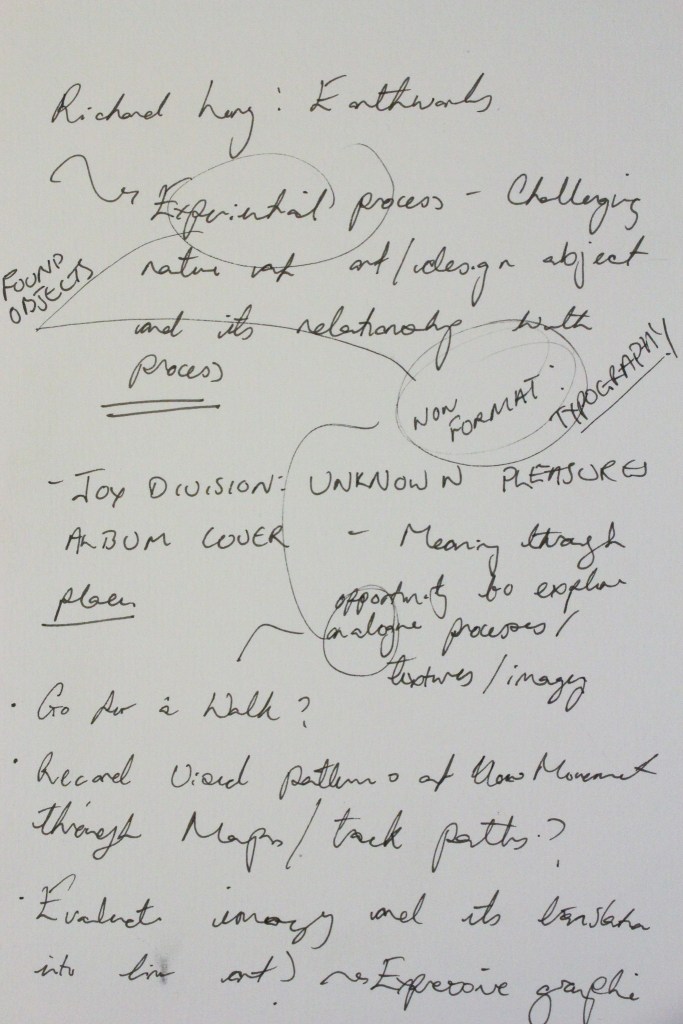 Richard Long: Earthworks
Experiential process - Challenging
FOUND
OBJECTS
nature of art/design object
and its relationship with
process
NON
FORMAT:
TYPOGRAPHY
- JOY DIVISION: UNKNOWN PLEASURES
ALBUM COVER - Meaning through
places
opportunity to explore
analogue processes/
textures/imagery
• Go for a walk?
• Record visual patterns of Movement
through Maps/track paths?
• Evaluate imagery and its translation
into line art) Expressive graphic